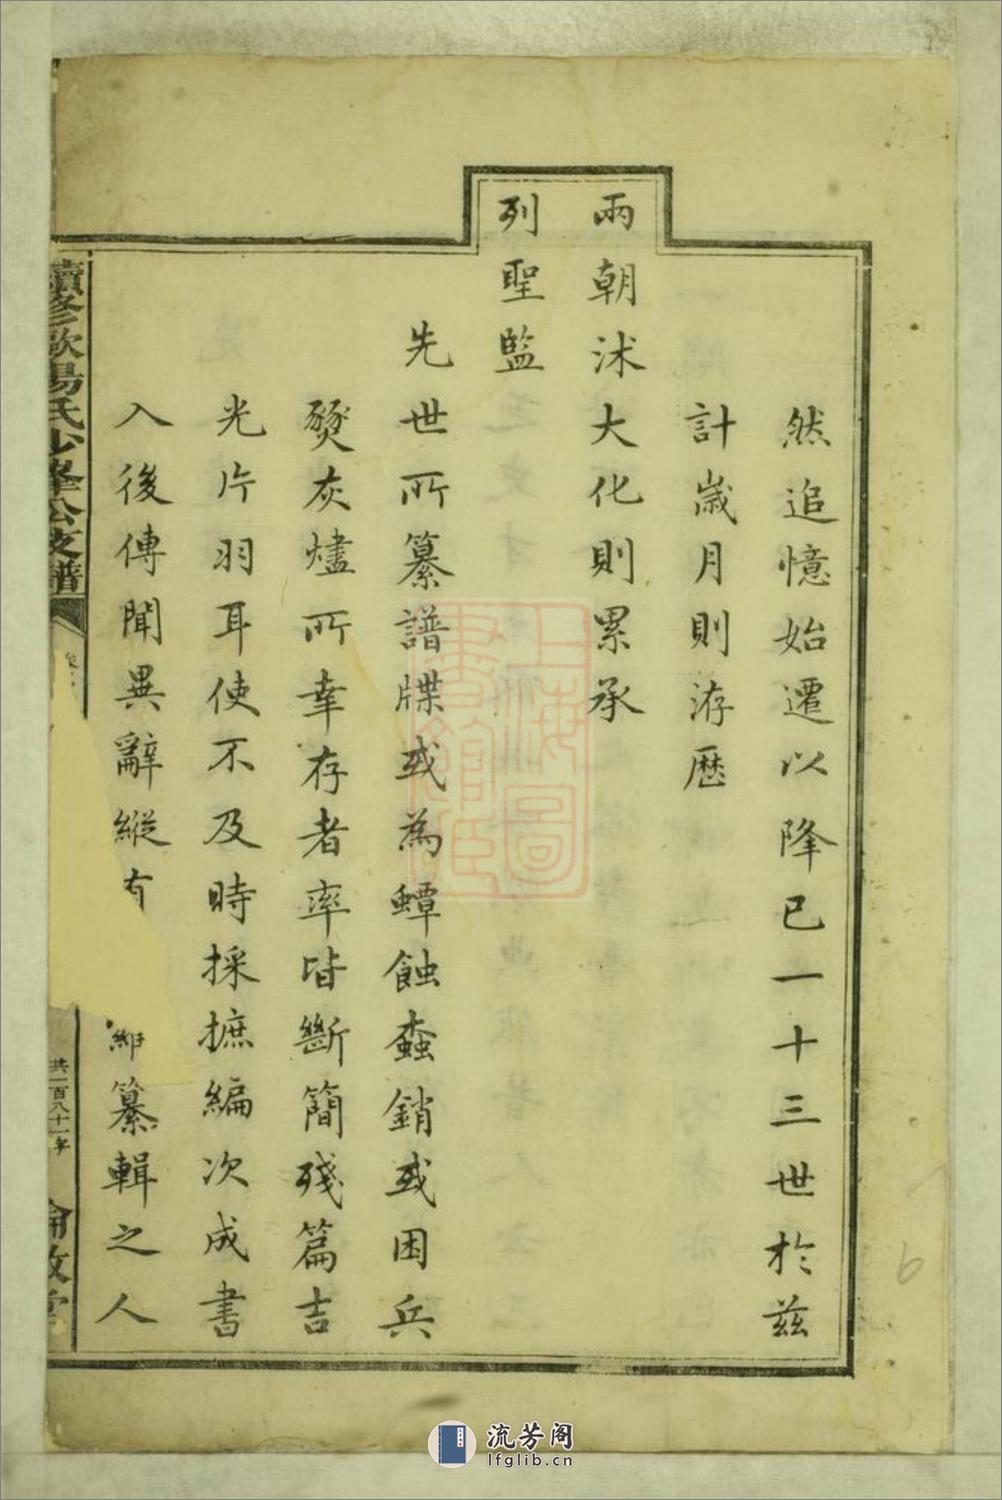 然追憶始遷以降已一十三世於兹
計歲月則洊歷
兩朝沭大化則累承
列聖監
先世所纂譜牒或為蟫蝕蠧銷或困兵
燹灰燼所幸存者率皆斷簡殘篇吉
光片羽耳使不及時採摭編次成書
入後傳聞異辭縱有
纂輯之人
續修歐陽氏少峯公支譜
共一百八十一字
倫敘堂
上海圖書館藏
流芳阁
lfglib.cn
6